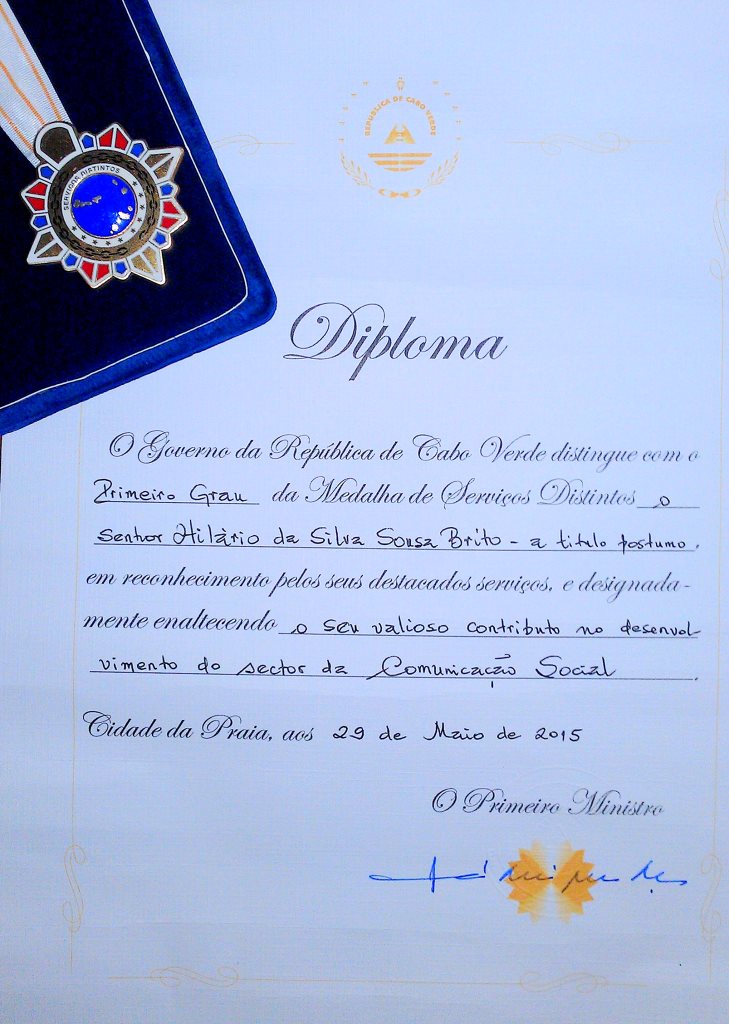 SERVIÇOS DISTINTOS
REPÚBLICA DE CABO VERDE
Diploma
O Governo da República de Cabo Verde distingue com o
Primeiro Grau da Medalha de Serviços Distintos o
Senhor Hilário da Silva Sousa Brito - a titulo postumo,
em reconhecimento pelos seus destacados serviços, e designada-
mente enaltecendo o seu valioso contributo no desenvol-
vimento do sector da Comunicação Social.
Cidade da Praia, aos 29 de Maio de 2015
O Primeiro Ministro